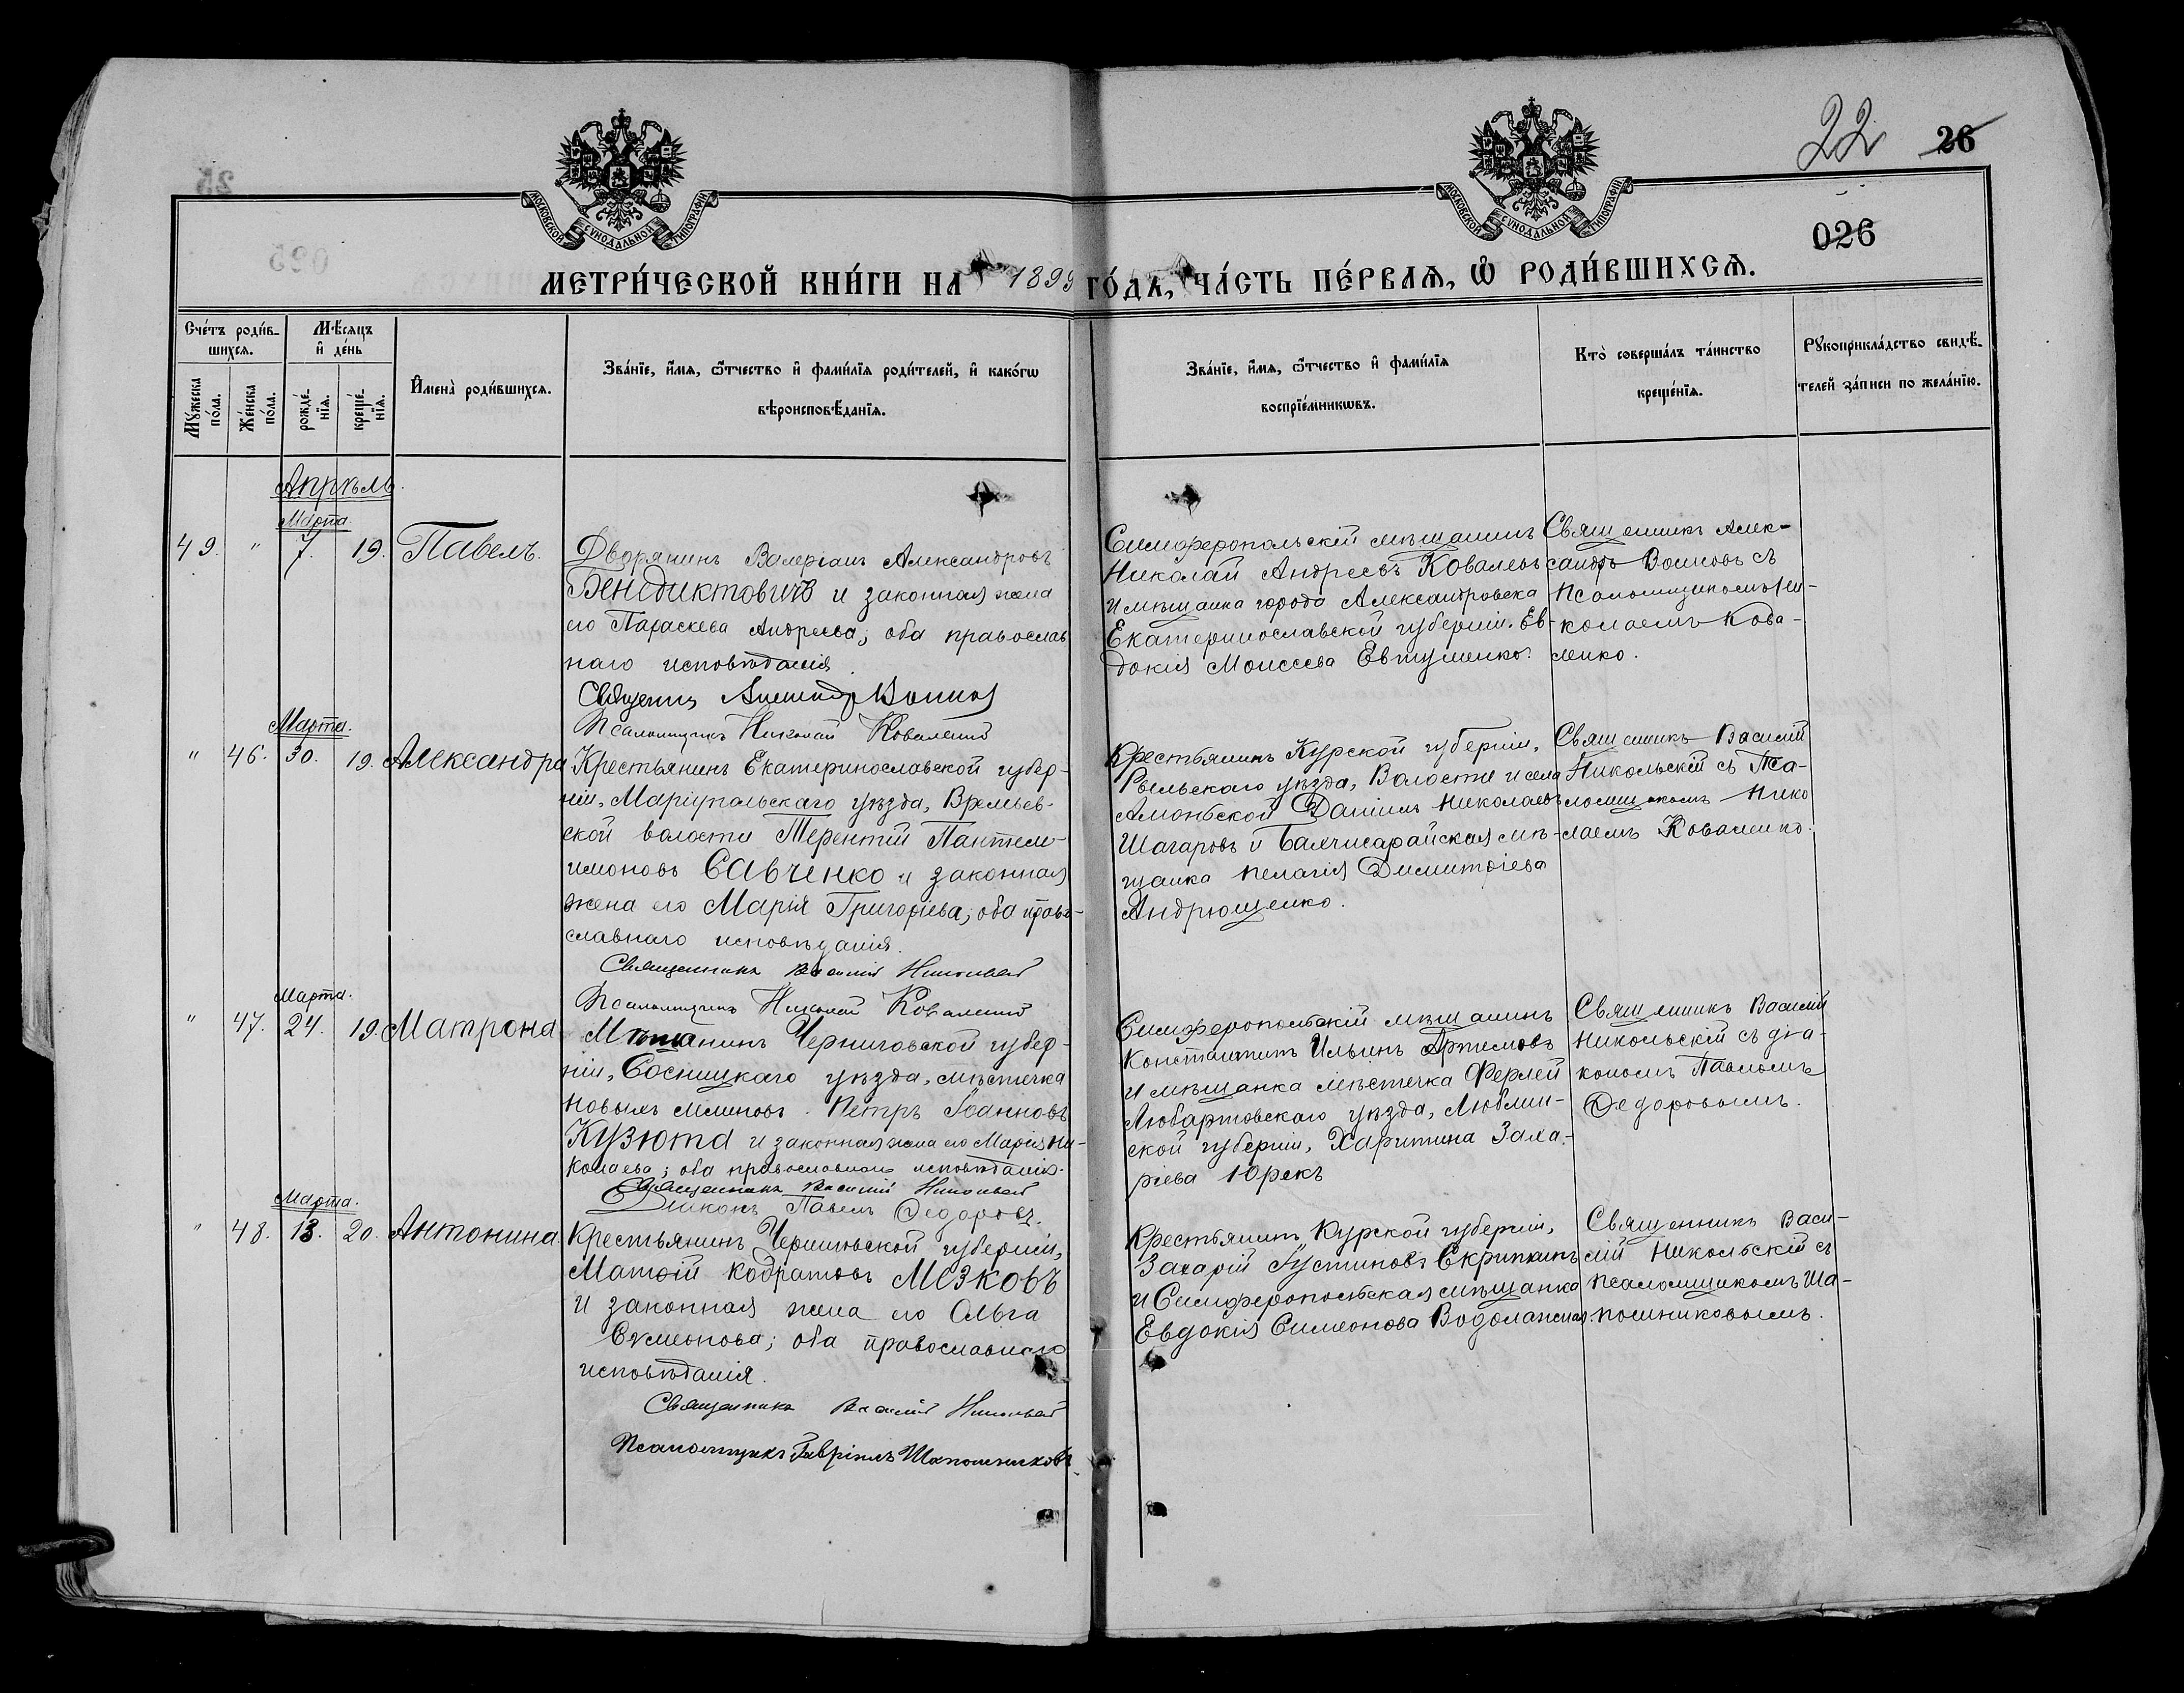 22 26
026
МОСКОВСКОЙ СѴНОДАЛЬНОЙ ТИПОГРАФІИ
МОСКОВСКОЙ СѴНОДАЛЬНОЙ ТИПОГРАФІИ
МЕТРИ́ЧЕСКОЙ КНИ́ГИ НА 1899 ГО́ДА, ЧА́СТЬ ПЕ́РВАѦ, Ѡ РОДИ́ВШИХСѦ.
Сче́тъ роди́в-
шихсѧ.
Мѣ́сѧцъ
и҆ де́нь
И҆мена̀ роди́вшихсѧ.
Зва́нїе, и҆́мѧ, ѻ҆́тчество и҆ фами́лїѧ роди́телей, и҆ како́гѡ
вѣроисповѣ́данїѧ.
Зва́нїе, и҆́мѧ, ѻ҆́тчество и҆ фами́лїѧ
воспрїе́мникѡвъ.
Кто̀ соверша́лъ та́инство
креще́нїѧ.
Рꙋкоприкла́дство свидѣ́-
телей за́писи по жела́нїю.
Мꙋ́жеска
по́ла.
Же́нска
по́ла.
рожде́-
нїѧ.
креще́-
нїѧ.
Апрѣль.
Марта
49. " 7. 19. Павелъ.
Дворянинъ Валеріанъ Александровъ
Бенедиктовичъ и законная жена
его Параскева Андреева; оба православ
наго исповѣданія.
Священникъ Александръ Воиновъ
Псаломщикъ Николай Коваленко
Симферопольскій мѣщанинъ
Николай Андреевъ Ковалевъ
и мѣщанка города Александровска
Екатеринославской губерніи. Ев-
докія Моисеева Евтушенко.
Священникъ Алек-
сандръ Воиновъ съ
псаломщикомъ Ни-
колаемъ Кова-
ленко.
Марта.
" 46. 30. 19. Александра
Крестьянинъ Екатеринославской губер-
ніи, Маріупольскаго уѣзда, Времьев-
ской волости Терентій Пантеле-
имоновъ Савченко и законная
жена его Марія Григоріева; оба право-
славнаго исповѣданія.
Священникъ Василій Никольскій
Псаломщикъ Николай Коваленко
Крестьянинъ Курской губерніи,
Рыльскаго уѣзда, Волости и села
Амонской Даніилъ Николаевъ
Шагаровъ и Бахчисарайская мѣ-
щанка Пелагія Димитріева
Андрющенко.
Священникъ Василій
Никольскій съ Пса-
ломщикомъ Нико
лаемъ Коваленко.
Марта.
" 47. 24. 19. Матрона
Мѣщанинъ Черниговской губер-
ніи, Сосницкаго уѣзда, мѣстечка
Новыхъ Млиновъ. Петръ Іоанновъ
Кузюта и законная жена его Марія Ни-
колаева; оба православнаго исповѣданія.
Священникъ Василій Никольскій
Діаконъ Павелъ Ѳедоровъ.
Симферопольскій мѣщанинъ
Константинъ Ильинъ Артимовъ
и мѣщанка мѣстечка Ферлей
Любартовскаго уѣзда, Люблин-
ской губерніи, Харитина Заха-
ріева Юрекъ
Священникъ Василій
Никольскій съ діа-
кономъ Павломъ
Ѳедоровымъ.
Марта.
" 48. 13. 20. Антонина.
Крестьянинъ Черниговской губерніи,
Матѳій Кодратовъ Мезковъ
и законная жена его Ольга
Симеонова; оба православнаго
исповѣданія.
Священникъ Василій Никольскій
Псаломщикъ Гавріилъ Шапошниковъ.
Крестьянинъ Курской губерніи,
Захарій Іустиновъ Скрипкинъ
и Симферопольская мѣщанка
Евдокія Симеонова Водолажская.
Священникъ Васи-
лій Никольскій съ
псаломщикомъ Ша-
пошниковымъ.